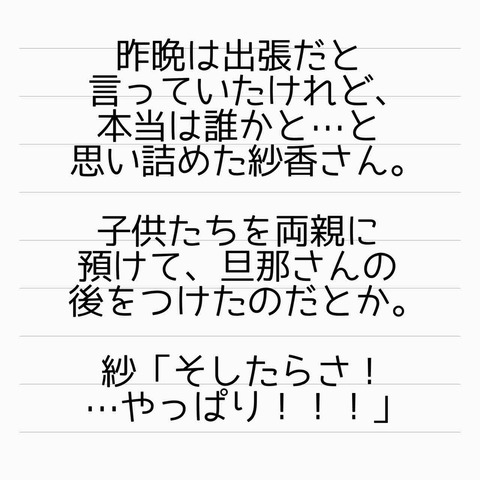 昨晩は出張だと
言っていたけれど、
本当は誰かと…と
思い詰めた紗香さん。
子供たちを両親に
預けて、旦那さんの
後をつけたのだとか。
紗「そしたらさ！
…やっぱり！！！」